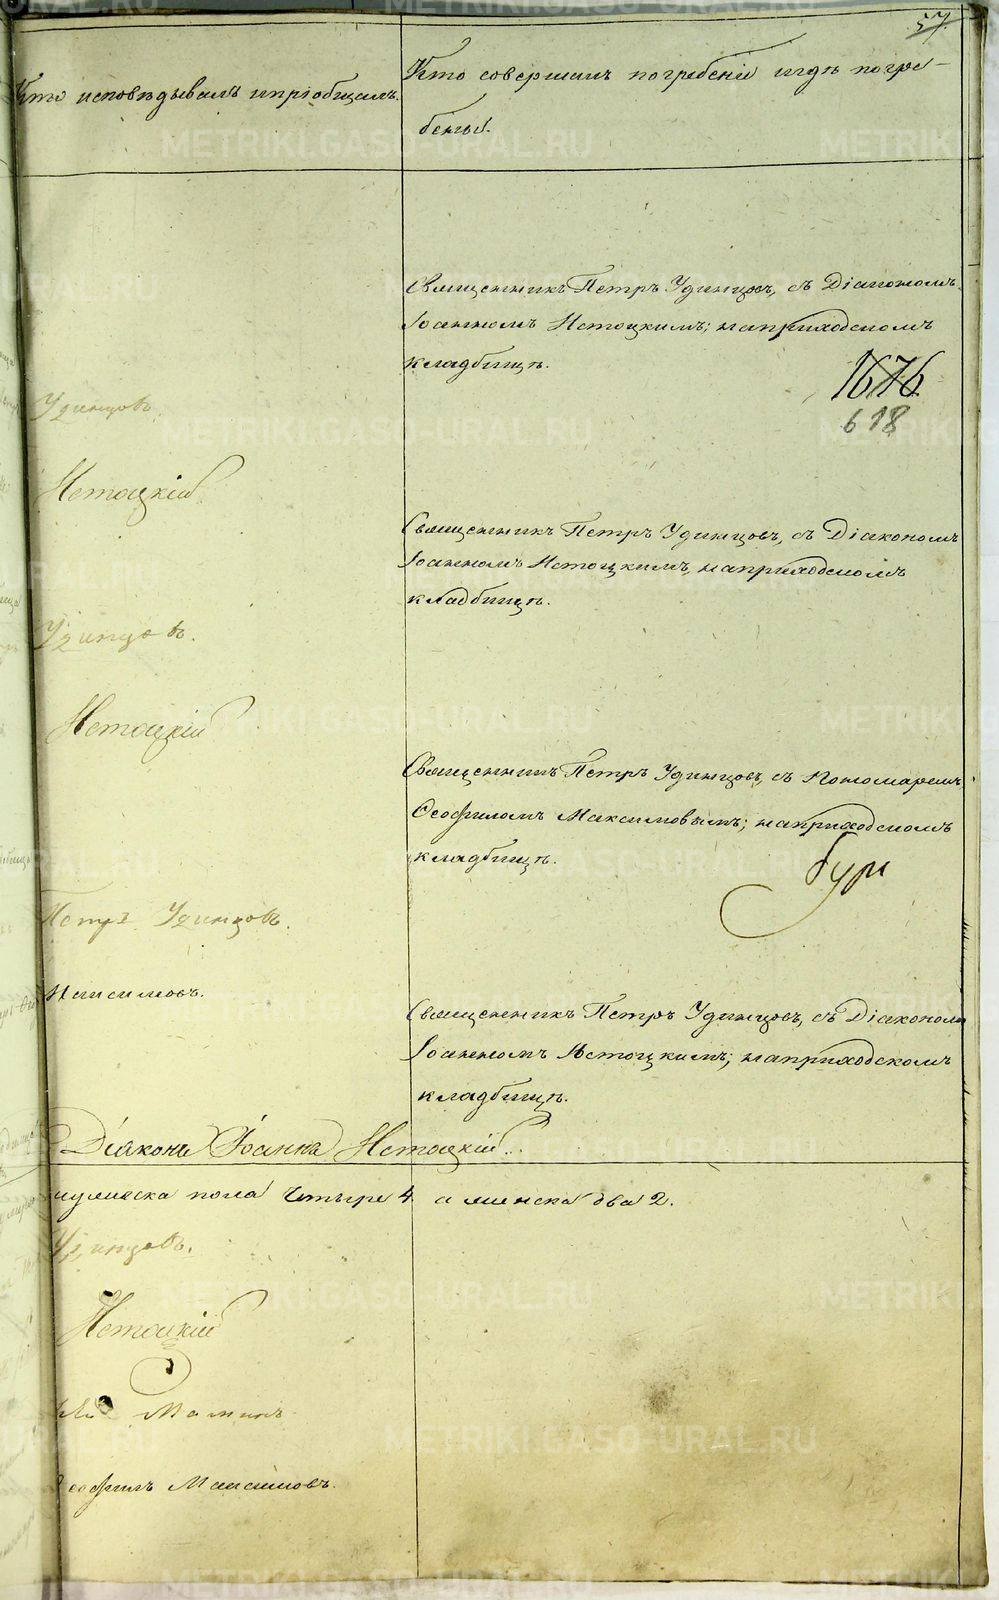 57.
Кто исповѣдывалъ и пріобщалъ.
Кто совершалъ погребеніе и гдѣ погре-
бены.
Священникъ Петръ Удинцовъ, съ Діакономъ
Іоанномъ Истоцкимъ; на приходскомъ
кладбищѣ.
1676
618
Удинцовъ.
Истоцкій
Священникъ Петръ Удинцовъ, съ Діакономъ
Іоанномъ Истоцкимъ, на приходскомъ
кладбищѣ.
Удинцовъ.
Истоцкій
Священникъ Петръ Удинцовъ, съ Пономаремъ
Ѳеофиломъ Максимовымъ; на приходскомъ
кладбищѣ.
Петръ Удинцовъ.
Максимовъ.
Священникъ Петръ Удинцовъ, съ Діакономъ
Іоанномъ Истоцкимъ; на приходскомъ
кладбищѣ.
Діаконъ Іоаннъ Истоцкій
мужеска пола четыре 4 а женска два 2.
Удинцовъ.
Истоцкій
Ѳеофилъ Максимовъ.
METRIKI.GASO-URAL.RU